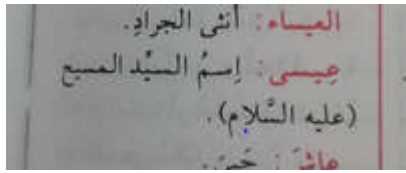 العيساء: أنثى الجرادِ.
عِيسى: إسمُ السيِّد المسيح
(عليه السَّلام).
عاشَ: حَيِيَ.